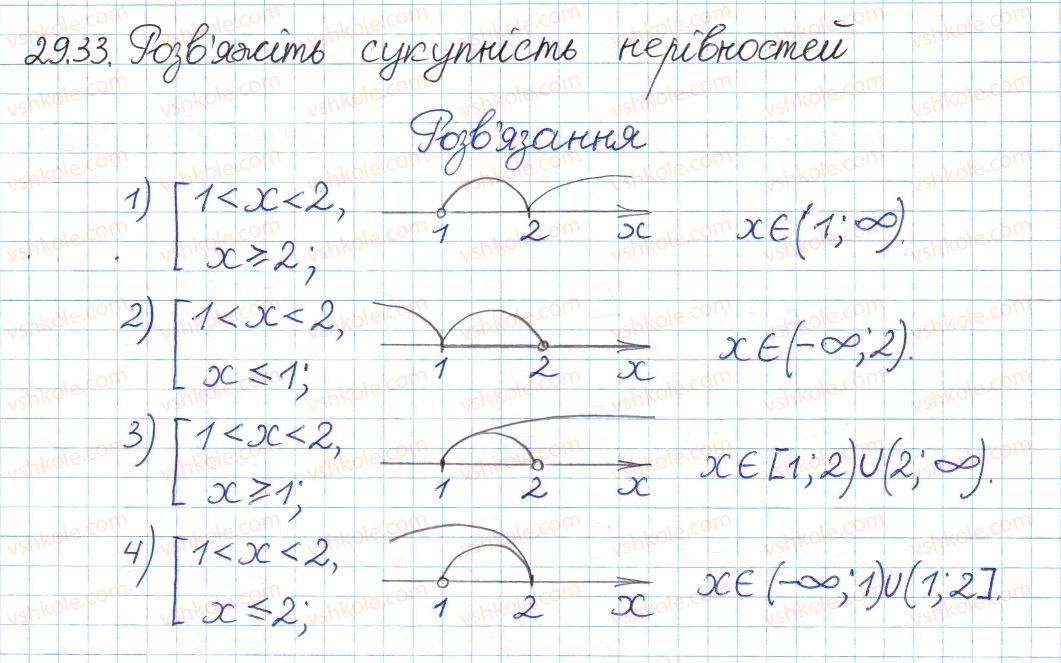 29.33. Розв'яжіть сукупність нерівностей
Розв'язання
1) [ 1 < x < 2,
x ≥ 2;
1 2 x
x ∈ (1; ∞).
2) [ 1 < x < 2,
x ≤ 1;
1 2 x
x ∈ (-∞; 2).
3) [ 1 < x < 2,
x ≥ 1;
1 2 x
x ∈ [1; 2) ∪ (2; ∞).
4) [ 1 < x < 2,
x ≤ 2;
1 2 x
x ∈ (-∞; 1) ∪ (1; 2].
vshkole.com